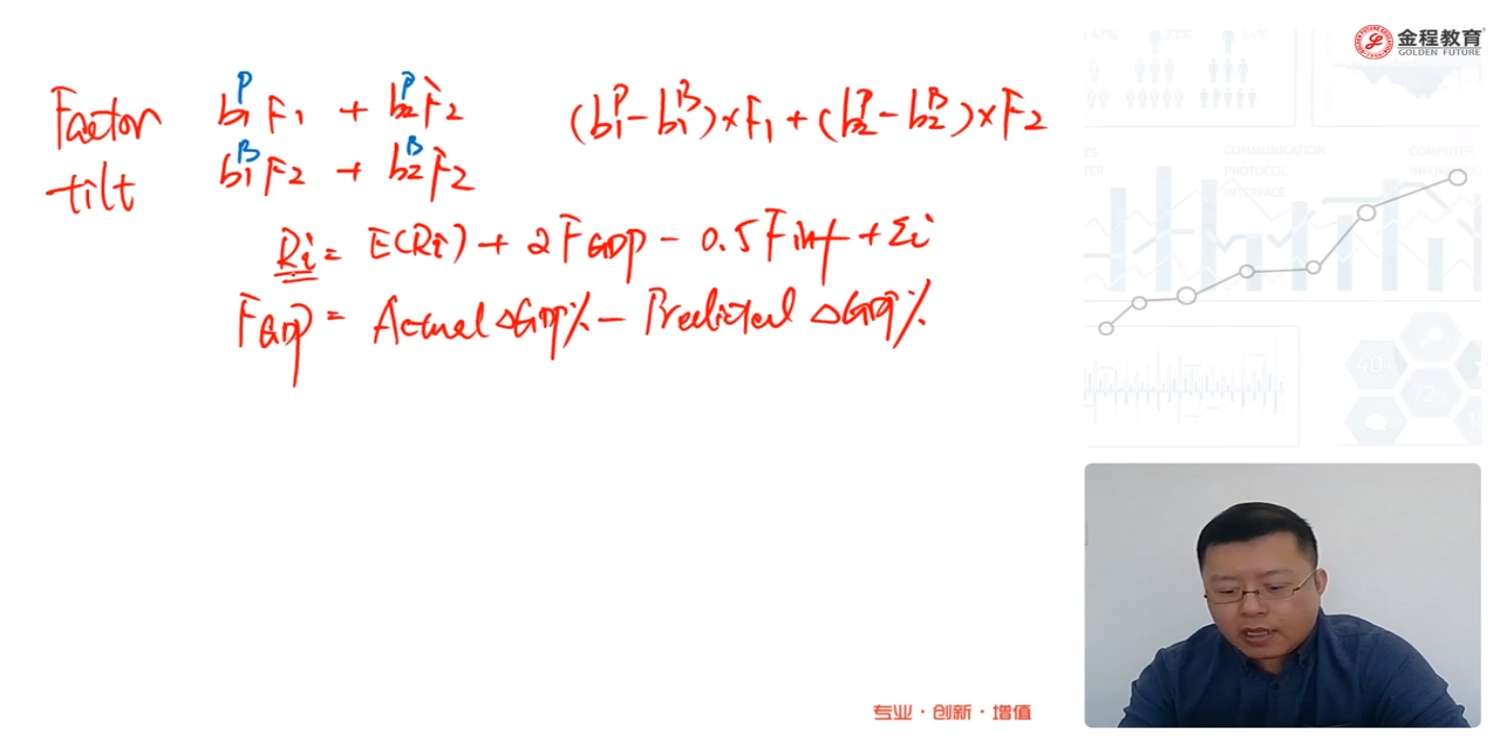 金程教育
GOLDEN FUTURE
Factor tilt
b₁ᴾ F₁ + b₂ᴾ F₂
b₁ᴮ F₂ + b₂ᴮ F₂
(b₁ᴾ - b₁ᴮ) × F₁ + (b₂ᴾ - b₂ᴮ) × F₂
Ri = E(Ri) + 2 F GDP - 0.5 F inf + Σi
F GDP = Actual △GDP% - Predicted △GDP%
COMMUNICATION
PROTOCOL
INTERFACE
COMPUTER
专业·创新·增值